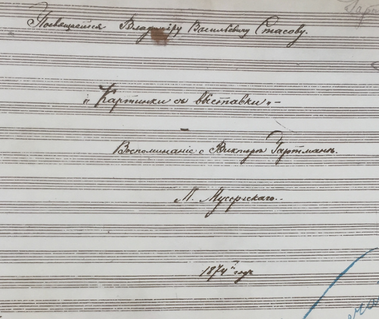 Посвящается Владиміру Васильевичу Стасову.
„Картинки съ выставки„ –
Воспоминаніе о Викторѣ Гартманѣ.
М. Мусоргскаго.
1874 г.